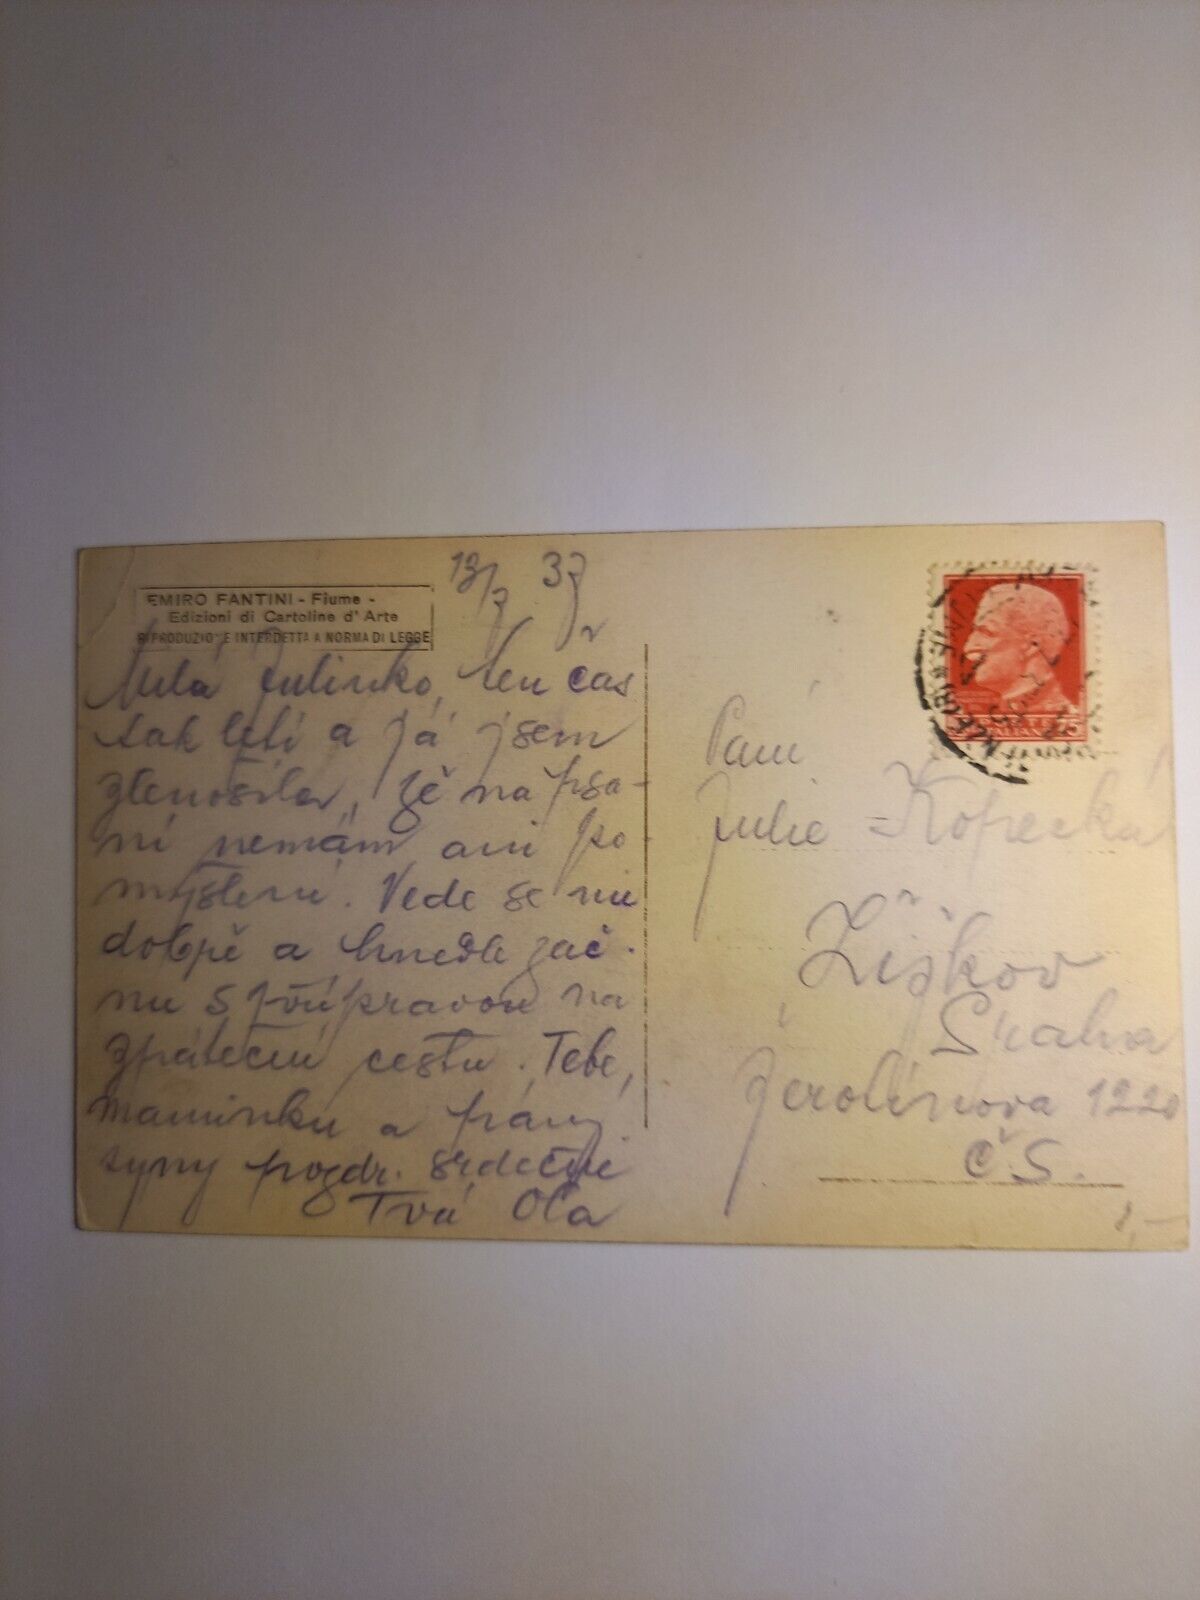 EMIRO FANTINI - Fiume -
Edizioni di Cartoline d'Arte
RIPRODUZIONE INTERDETTA A NORMA DI LEGGE
13/7 37
Milá Julinko, ten čas
tak letí a já jsem
zlenošila, že na psa-
ní nemám ani po-
myšlení. Vede se mi
dobře a hnedle zač-
nu s přípravou na
zpáteční cestu. Tebe,
maminku a pány
syny pozdr. srdečně
Tvá Ola
Paní
Julie Kopecká
Žižkov
Praha
Žerotínova 1220
ČS.
1,-
75